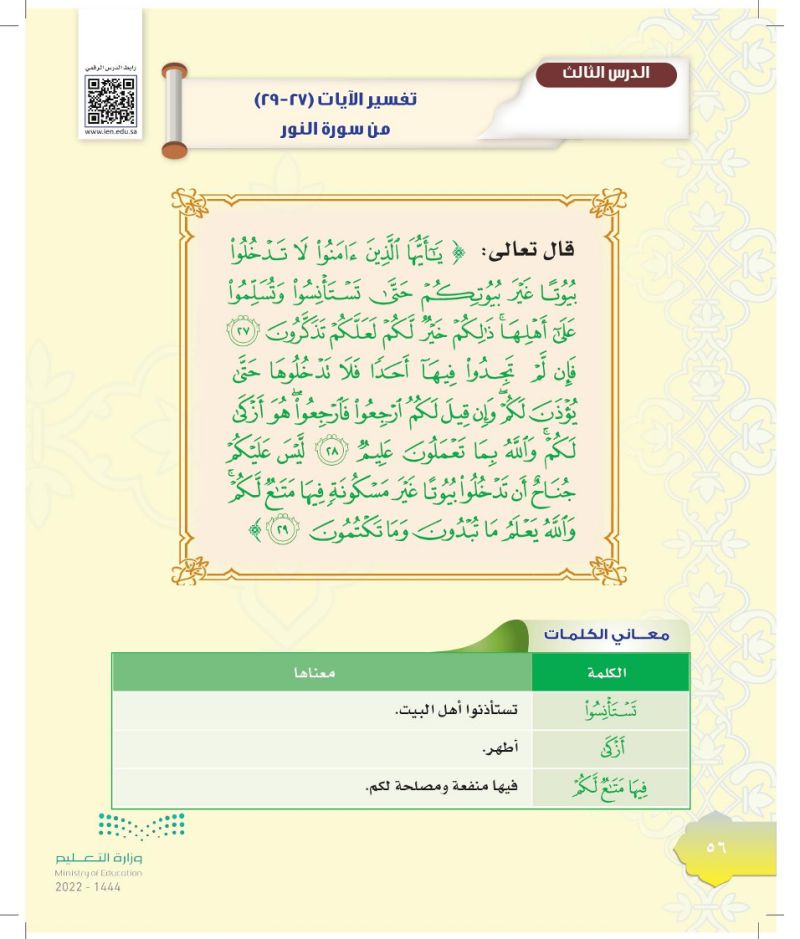 رابط الدرس الرقمي
www.ien.edu.sa
الدرس الثالث
تفسير الآيات (٢٧-٢٩)
من سورة النور
قال تعالى: ﴿ يَـٰٓأَيُّهَا ٱلَّذِينَ ءَامَنُوا۟ لَا تَدْخُلُوا۟
بُيُوتًا غَيْرَ بُيُوتِكُمْ حَتَّىٰ تَسْتَأْنِسُوا۟ وَتُسَلِّمُوا۟
عَلَىٰٓ أَهْلِهَا ۚ ذَٰلِكُمْ خَيْرٌ لَّكُمْ لَعَلَّكُمْ تَذَكَّرُونَ ٢٧
فَإِن لَّمْ تَجِدُوا۟ فِيهَآ أَحَدًا فَلَا تَدْخُلُوهَا حَتَّىٰ
يُؤْذَنَ لَكُمْ ۖ وَإِن قِيلَ لَكُمُ ٱرْجِعُوا۟ فَٱرْجِعُوا۟ ۖ هُوَ أَزْكَىٰ
لَكُمْ ۚ وَٱللَّهُ بِمَا تَعْمَلُونَ عَلِيمٌ ٢٨ لَّيْسَ عَلَيْكُمْ
جُنَاحٌ أَن تَدْخُلُوا۟ بُيُوتًا غَيْرَ مَسْكُونَةٍ فِيهَا مَتَـٰعٌ لَّكُمْ ۚ
وَٱللَّهُ يَعْلَمُ مَا تُبْدُونَ وَمَا تَكْتُمُونَ ٢٩ ﴾
معـــاني الكلمـات
الكلمة معناها
تَسْتَأْنِسُوا۟ تستأذنوا أهل البيت.
أَزْكَىٰ أطهر.
فِيهَا مَتَـٰعٌ لَّكُمْ فيها منفعة ومصلحة لكم.
٥٦
وزارة التعـــليم
Ministry of Education
2022 - 1444